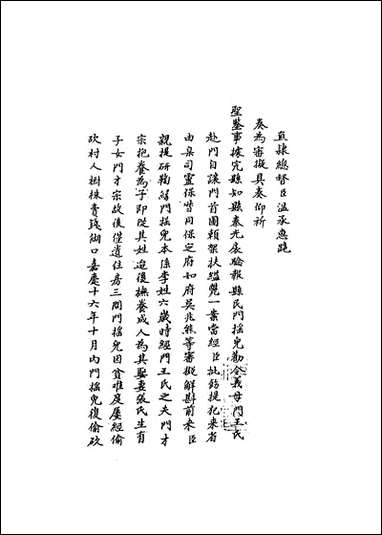 直隸總督臣温承惠跪
奏為審擬具奏仰祈
聖鑒事據完縣知縣秦光辰驗報縣民門搖兒勒令義母門王氏
赴門自讓門首圖賴架扶縊斃一案當經臣批飭提犯來省
由臬司靈保督同保定府知府吳兆熊等審擬解勘前來臣
親提研鞫緣門搖兒本係李姓六歲時經門王氏之夫門才
宗抱養為子即從其姓迨後撫養成人為其娶妻張氏生有
子女門才宗故後僅遺住房三間門搖兒因貧難度屢經偷
砍村人樹株賣錢餬口嘉慶十六年十月內門搖兒復偷砍